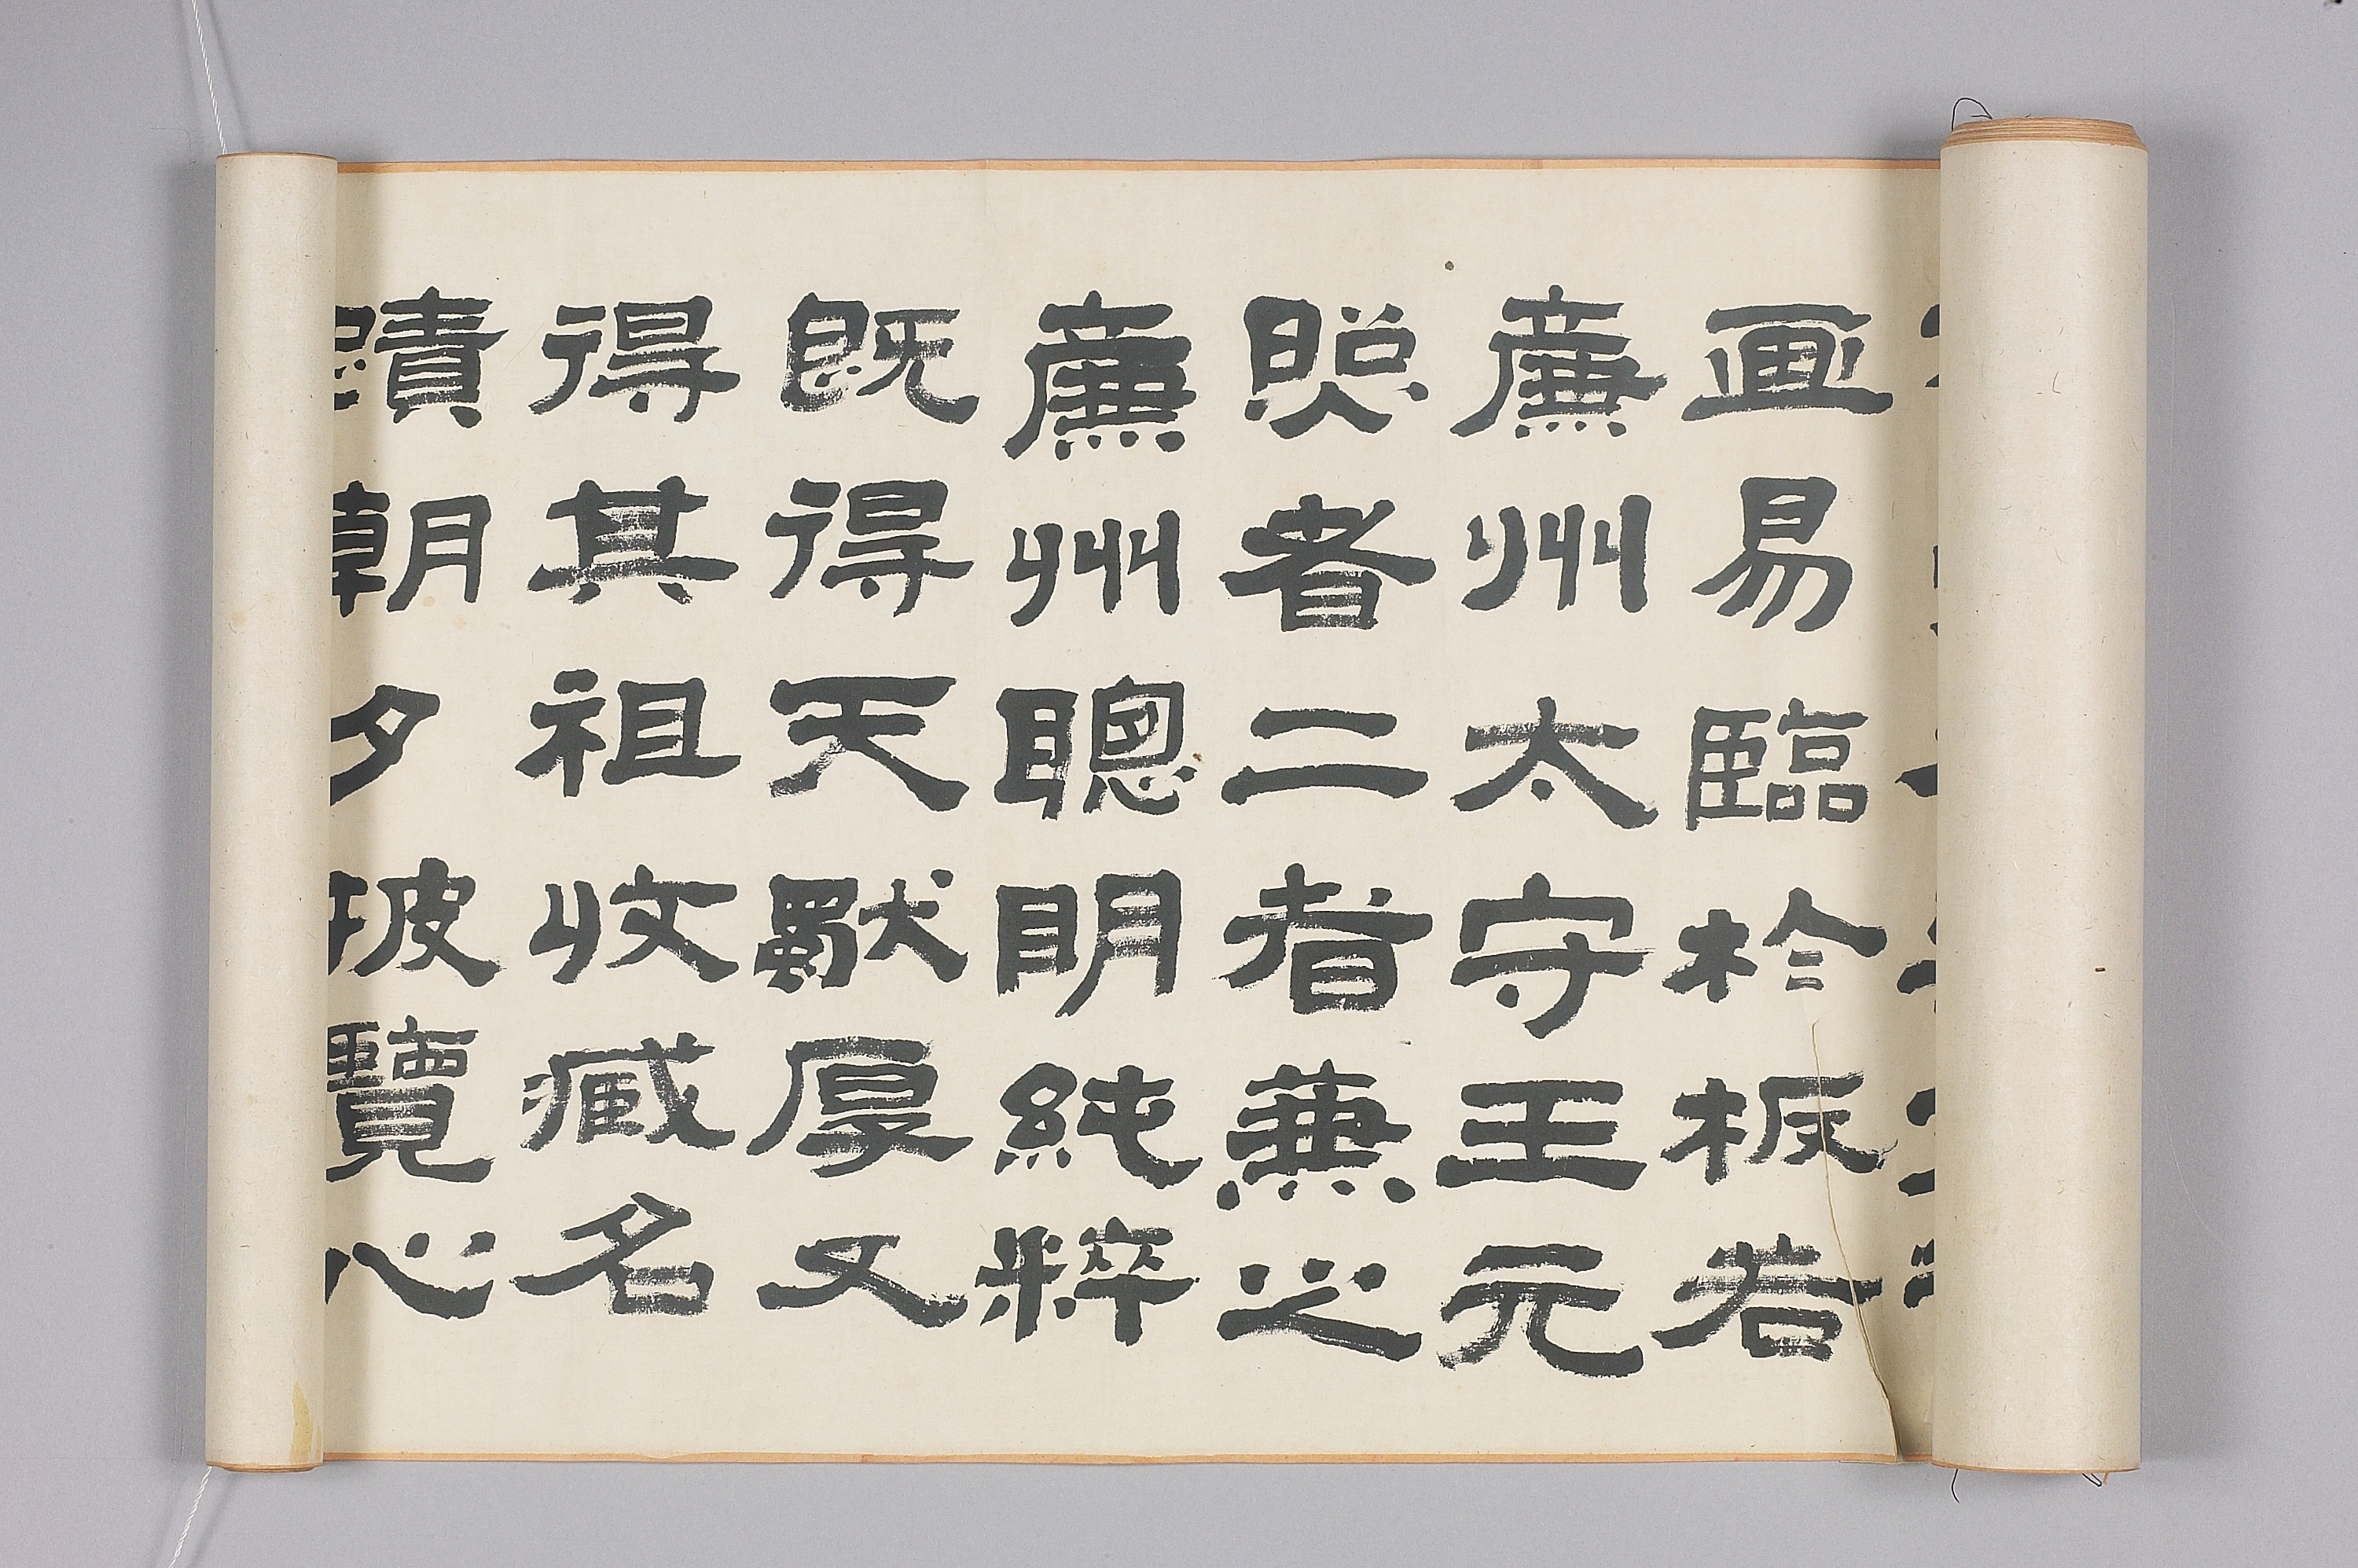 画易臨於板若
廉州太守王元
照者二者兼之
廉州聰明純粹
既得天獸厚又
得其祖收臧名
蹟朝夕披覽心